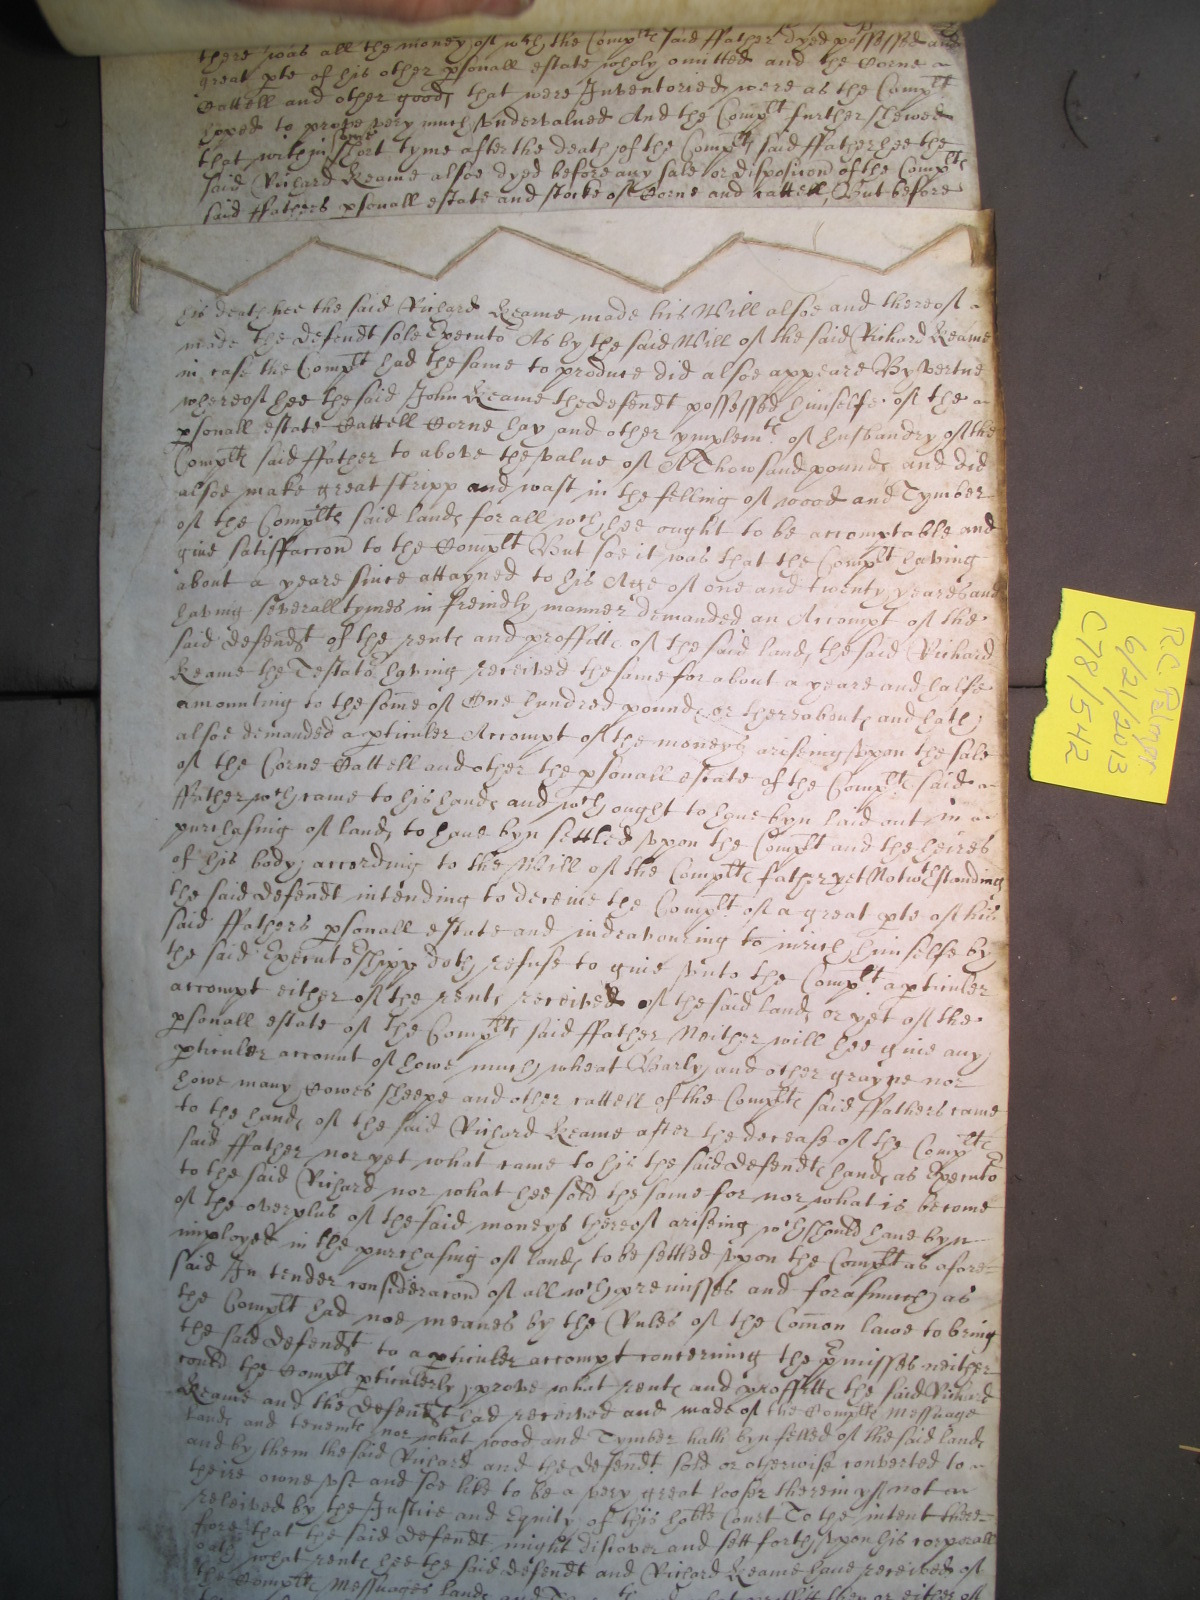 there was all the money of wch the Complts said ffather dyed possessed and
great pte of his other psonall estate wholy omitted and the Corne a
Cattell and other goods that were Inventoried were as the Complt
hoped to prove very much undervalued And the Complt further shewed
that within some short tyme after the death of the Complts said ffather hee the
said Richard Keame alsoe dyed before any sale or disposicon of the Complts
said ffathers psonall estate and stocke of Corne and cattell, But before
his death hee the said Richard Keame made his Will alsoe and thereof a
made the defendt sole Executo As by the said Will of the said Richard Keame
in case the Complt had the same to produce did alsoe appeare By vertue
whereof hee the said John Keame the defendt possessed himselfe of the a
psonall estate Cattell Corne hay and other ymplemts of husbandry of the
Complts said ffather to above the value of A Thowsand pounds and did
alsoe make great stripp and wast in the felling of wood and Tymber
of the Complts said lands for all wch hee ought to be accomptable and
give satisffaccon to the Complt But soe it was that the Complt having
about a yeare since attayned to his Age of one and twenty yeares and
having severall tymes in freindly manner demanded an Accompt of the
said defendt of the rents and proffitts of the said lands, the said Richard
Keame the Testato having received the same for about a yeare and halfe
amounting to the some of One hundred pounds or thereabouts and hath
alsoe demanded a pticuler Accompt of the moneys ariseing upon the sale
of the Corne Cattell and other the psonall estate of the Complts said a
ffather wch came to his hands and wch ought to have byn laid out in a
purchasing of lands to have byn settled upon the Complt and the heires
of his body according to the Will of the Complts father yet Notwthstanding
the said defendt intending to deceive the Complt of a great pte of his
said ffathers psonall estate and indeavouring to inrich himselfe by
the said Executoshipp doth refuse to give unto the Complt a pticuler
accompt either of the rents received of the said lands or yet of the
psonall estate of the Complts said ffather Neither will hee give any
pticuler account of howe much wheat Barly and other grayne nor
howe many Cowes sheepe and other cattell of the Complts said ffathers came
to the hands of the said Richard Keame after the decease of the Complts
said ffather nor yet what came to his the said defendts hands as Executo
to the said Richard nor what hee sold the same for nor what is become
of the overplus of the said moneys thereof arising wch should have byn
imployed in the purchasing of lands to be settled upon the Complt as afore=
said In tender consideracon of all wch premisses and forasmuch as
the Complt had noe meanes by the Rules of the Comon lawe to bring
the said defendt to a pticuler accompt concerning the pmisses neither
could the Complt pticulerly prove what rents and proffitts the said Richard
Keame and the defendt had received and made of the Complts Messuage
lands and tenemts nor what wood and Tymber hath byn felled of the said lands
and by them the said Richard and the defendt sold or otherwise converted to a
theire owne use and soe like to be a very great looser therein yf not
releived by the Justice and Equity of this hoble Court To the intent there=
fore that the said defendt might discover and sett forth upon his corporall
oath what rents hee the said defendt and Richard Keame have received of
the Complts Messuages lands and
R.C. Palmer
6/21/2013
C78/542